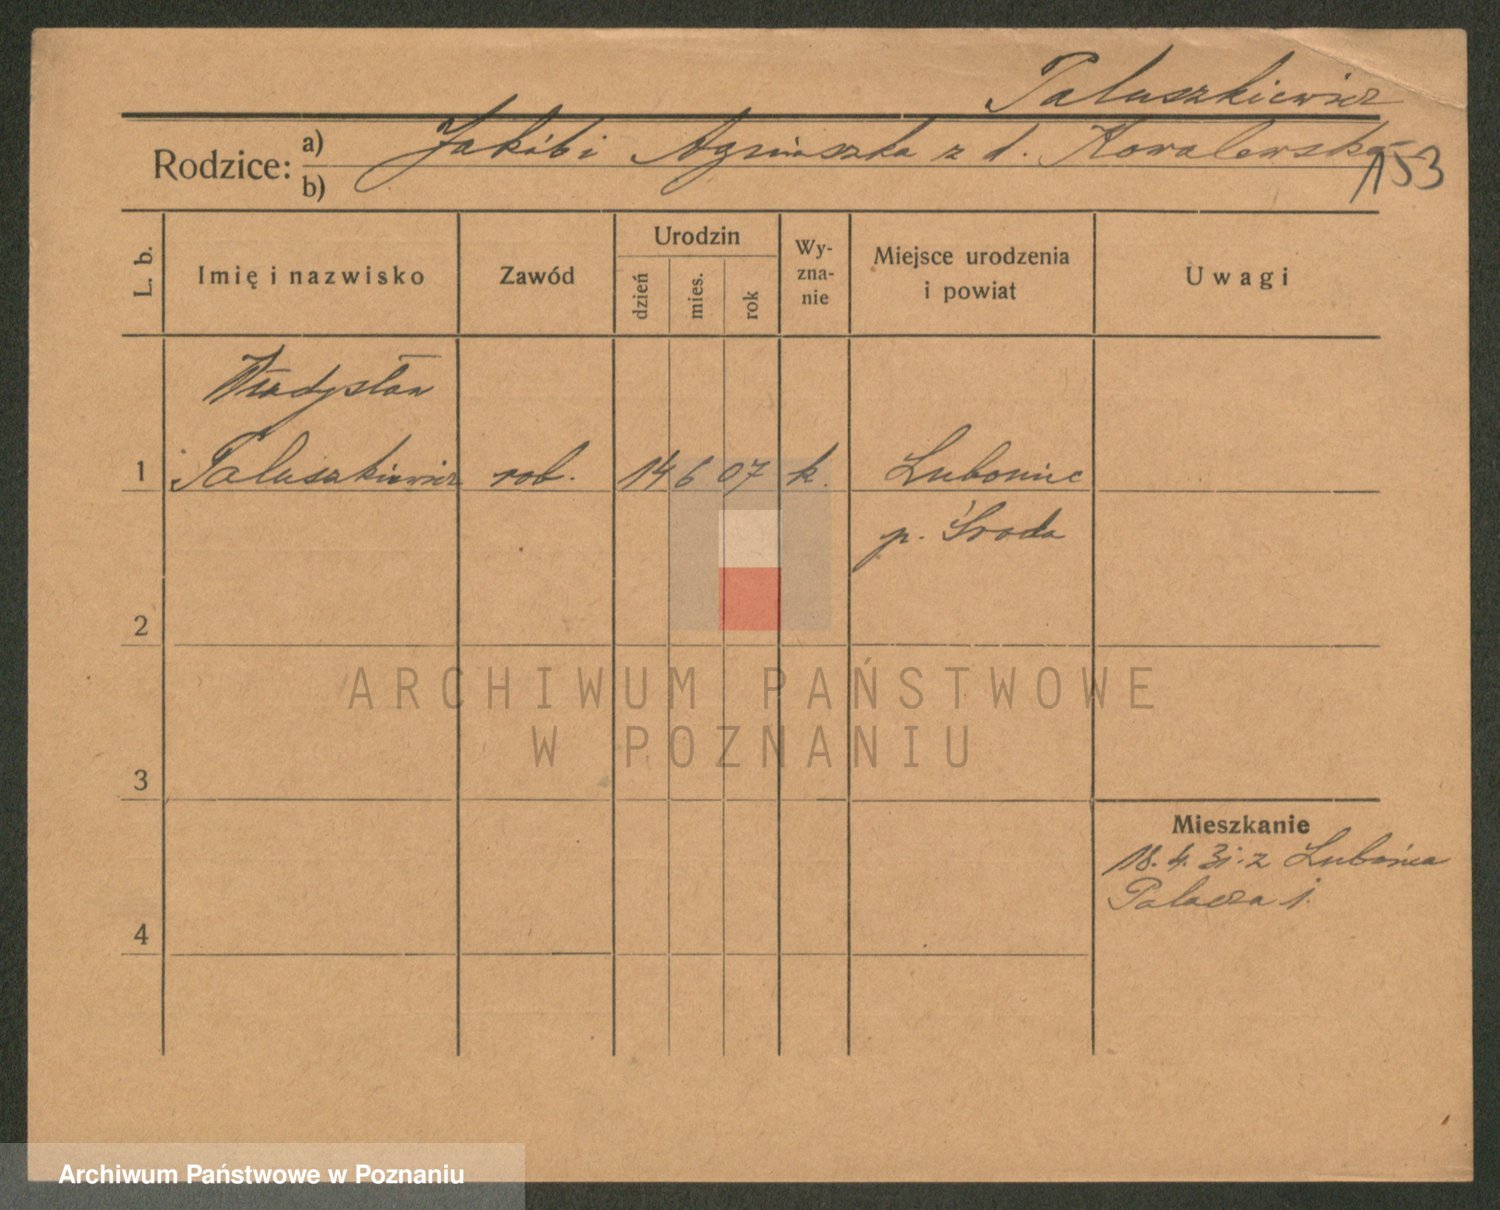 Paluszkiewicz
Rodzice: a) Jakób i Agnieszka z d. Kowalewska
b)
153
L. b.
Imię i nazwisko
Zawód
Urodzin
dzień
mies.
rok
Wy-
zna-
nie
Miejsce urodzenia
i powiat
Uwagi
Władysław
1 Paluszkiewicz rob. 14 6 07 k. Lubonic
p. Środa
2
ARCHIWUM PAŃSTWOWE
W POZNANIU
3
Mieszkanie
18. 4. 31. z Lubońca
Palacza 1.
4
Archiwum Państwowe w Poznaniu